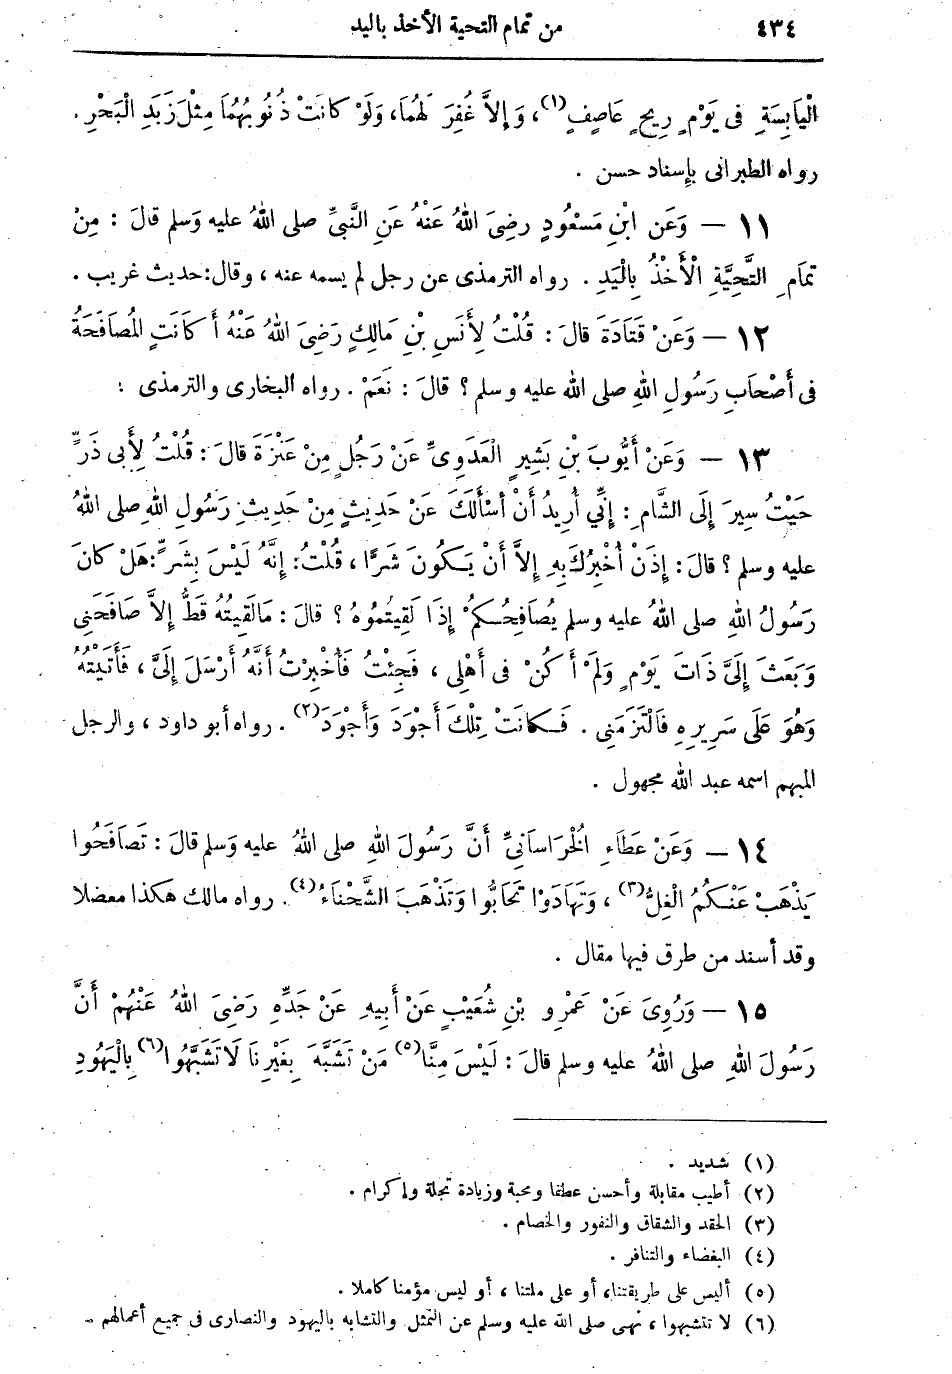 ٤٣٤ من تمام التحية الأخذ باليد
الْيَابِسَةِ فِى يَوْمِ رِيحٍ عَاصِفٍ(١)، وَإِلاَّ غُفِرَ لَهُمَا، وَلَوْ كَانَتْ ذُنُوبُهُمَا مِثْلَ زَبَدِ الْبَحْرِ .
رواه الطبرانى بإسناد حسن .
١١ — وَعَنِ ابْنِ مَسْعُودٍ رضِىَ اللهُ عَنْهُ عَنِ النَّبِىِّ صلى اللهُ عليه وَسلم قالَ : مِنْ
تمَامِ التَّحِيَّةِ الْأَخْذُ بِالْيَدِ . رواه الترمذى عن رجل لم يسمه عنه ، وقال: حديث غريب .
١٢ — وَعَنْ قَتَادَةَ قالَ : قُلْتُ لِأَنَسِ بْنِ مَالِكٍ رَضِىَ اللهُ عَنْهُ أَ كَانَتِ المُصَافَحَةُ
فى أَصْحَابِ رَسُولِ اللهِ صلى الله عليه وسلم ؟ قالَ : نَعَمْ . رواه البخارى والترمذى :
١٣ — وَعَنْ أَيُّوبَ بْنِ بَشِيرٍ الْعَدَوِىِّ عَنْ رَجُلٍ مِنْ عَنْزَةَ قالَ : قُلْتُ لِأَبِى ذَرٍّ
حَيْثُ سِيرَ إِلَى الشَّامِ : إِنِّي أُرِيدُ أَنْ أَسْأَلَكَ عَنْ حَدِيثٍ مِنْ حَدِيثِ رَسُولِ اللهِ صلى اللهُ
عليه وسلم ؟ قالَ : إِذَنْ أُخْبِرُكَ بِهِ إِلاَّ أَنْ يَكُونَ شَرًّا ، قُلْتُ: إِنَّهُ لَيْسَ بِشَرٍّ: هَلْ كانَ
رَسُولُ اللهِ صلى اللهُ عليه وسلم يُصَافِحُكُمْ إِذَا لَقِيتُمُوهُ ؟ قالَ : مَا لَقِيتُهُ قَطُّ إِلاَّ صَافَحَنِى
وَبَعَثَ إِلَىَّ ذَاتَ يَوْمٍ وَلَمْ أَ كُنْ فى أَهْلِى ، فَجِئْتُ فَأُخْبِرْتُ أَنَّهُ أَرْسَلَ إِلَىَّ ، فَأَتَيْتُهُ
وَهُوَ عَلَى سَرِيرِهِ فَالْتَزَمَنِى . فَكانَتْ تِلْكَ أَجْوَدَ وَأَجْوَدَ(٢). رواه أبو داود ، والرجل
المبهم اسمه عبد الله مجهول .
١٤ — وَعَنْ عَطَاءِ الْخُرَاسَانِىِّ أَنَّ رَسُولَ اللهِ صلى اللهُ عليه وَسلم قالَ : تَصَافَحُوا
يَذْهَبْ عَنْكُمُ الْغِلُّ(٣) ، وَتَهَادَوْا تَحَابُّوا وَتَذْهَبَ الشَّحْنَاءُ(٤). رواه مالك هكذا معضلا
وقد أسند من طرق فيها مقال .
١٥ — وَرُوِىَ عَنْ عَمْرِو بْنِ شُعَيْبٍ عَنْ أَبِيهِ عَنْ جَدِّهِ رَضِىَ اللهُ عَنْهُمْ أَنَّ
رَسُولَ اللهِ صلى اللهُ عليه وسلم قالَ : لَيْسَ مِنَّا(٥) مَنْ تَشَبَّهَ بِغَيْرِنَا لَا تَشَبَّهُوا(٦) بِالْيَهُودِ
(١) شديد .
(٢) أطيب مقابلة وأحسن عطفا ومحبة وزيادة تجلة وإكرام .
(٣) الحقد والشقاق والنفور والخصام .
(٤) البغضاء والتنافر .
(٥) أليس على طريقتنا، أو على ملتنا ، أو ليس مؤمنا كاملا .
(٦) لا تتشبهوا ، نهى صلى الله عليه وسلم عن التمثل والتشابه باليهود والنصارى فى جميع أعمالهم ــ